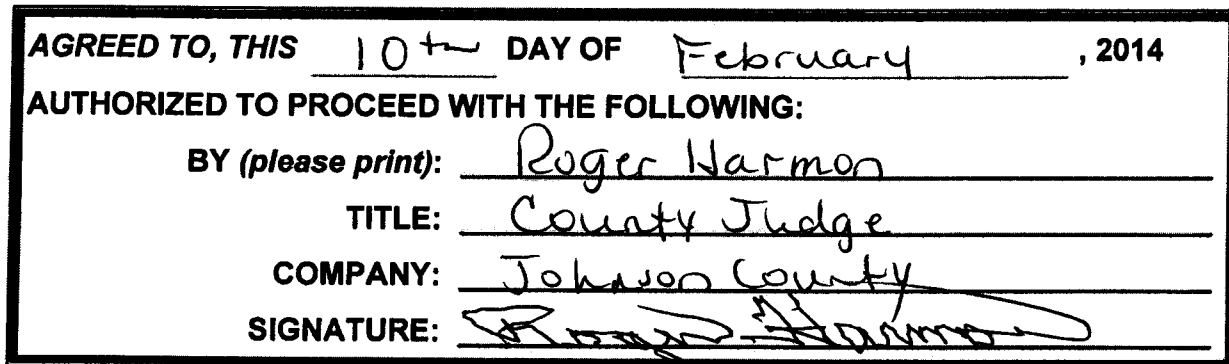 AGREED TO, THIS 10th DAY OF February, 2014
AUTHORIZED TO PROCEED WITH THE FOLLOWING:
BY (please print): Roger Harmon
TITLE: County Judge
COMPANY: Johnson County
SIGNATURE: Roger Harmon